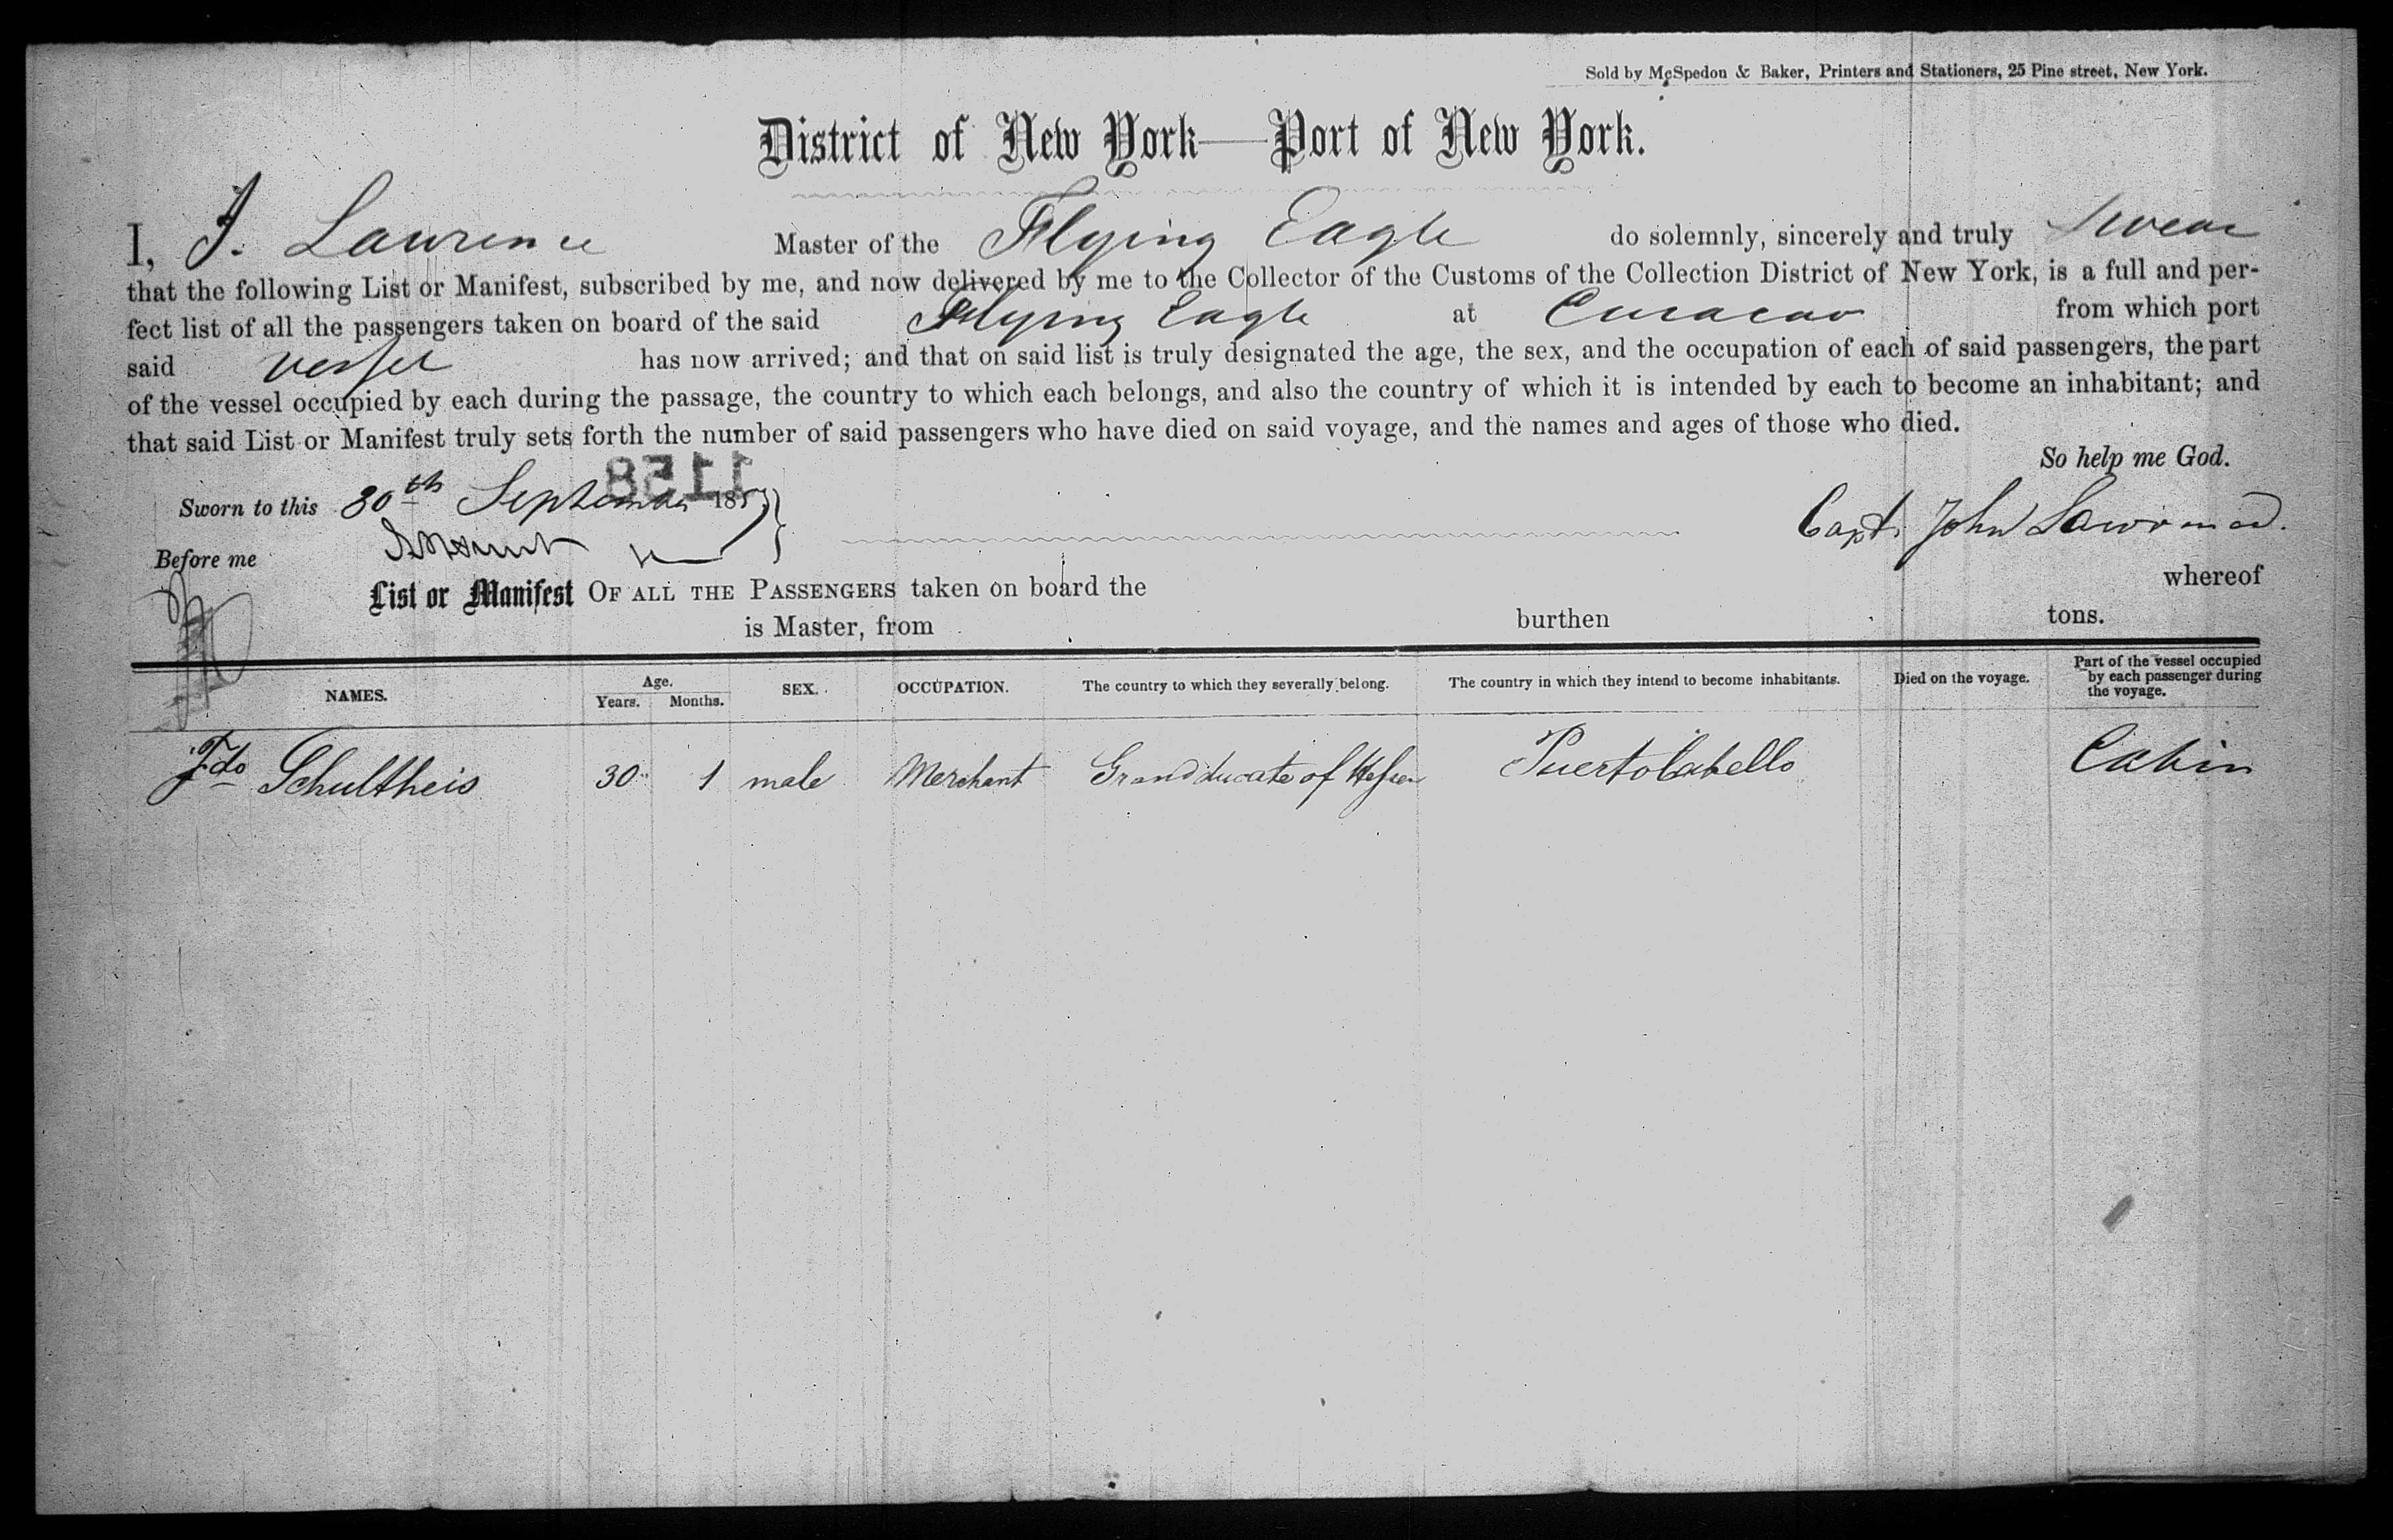 Sold by McSpedon & Baker, Printers and Stationers, 25 Pine street, New York.
District of New York—Port of New York.
I, J. Lawrence Master of the Flying Eagle do solemnly, sincerely and truly Swear
that the following List or Manifest, subscribed by me, and now delivered by me to the Collector of the Customs of the Collection District of New York, is a full and per-
fect list of all the passengers taken on board of the said Flying Eagle at Curacao from which port
said vessel has now arrived; and that on said list is truly designated the age, the sex, and the occupation of each of said passengers, the part
of the vessel occupied by each during the passage, the country to which each belongs, and also the country of which it is intended by each to become an inhabitant; and
that said List or Manifest truly sets forth the number of said passengers who have died on said voyage, and the names and ages of those who died.
So help me God.
1158
Sworn to this 30th September 1857
Capt. John Lawrence
Before me
List or Manifest OF ALL THE PASSENGERS taken on board the whereof
is Master, from burthen tons.
NAMES. Age. Years. Months. SEX. OCCUPATION. The country to which they severally belong. The country in which they intend to become inhabitants. Died on the voyage. Part of the vessel occupied by each passenger during the voyage.
Fdo Schultheis 30 1 male Merchant Grandducate of Hessen Puerto Cabello Cabin